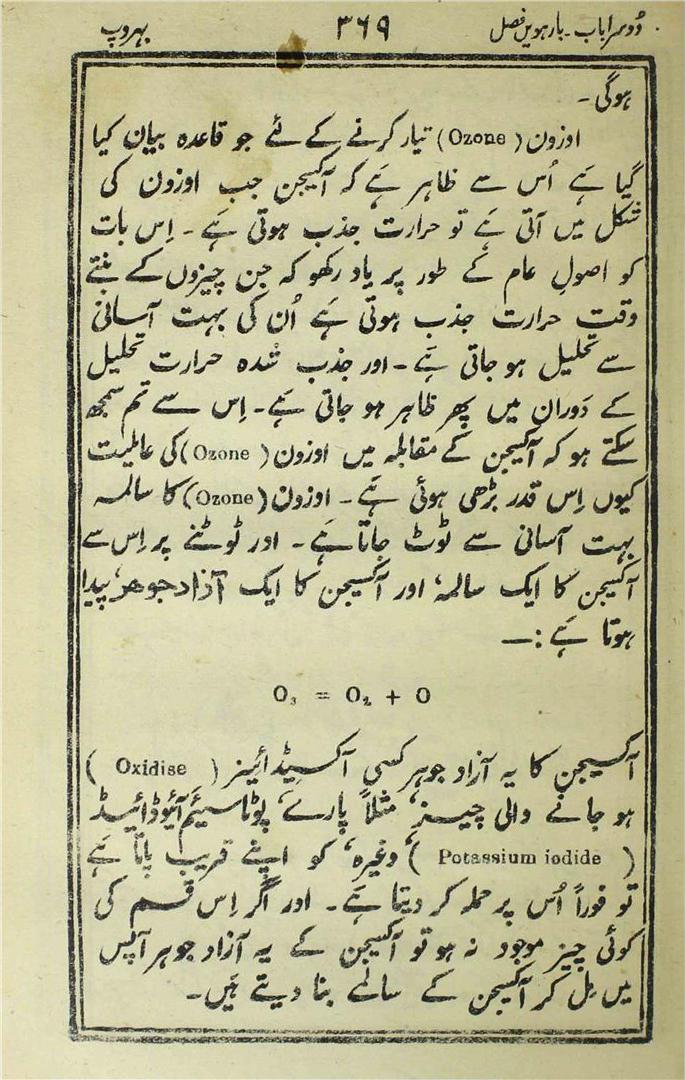 دُوسرا باب۔ بارھویں فصل ۳۶۹ بہروپ
ہوگی۔
اوزون (Ozone) تیار کرنے کے لئے جو قاعدہ بیان کیا
گیا ہے اُس سے ظاہر ہے کہ آکسیجن جب اوزون کی
شکل میں آتی ہے تو حرارت جذب ہوتی ہے۔ اِس بات
کو اصولِ عام کے طور پر یاد رکھو کہ جن چیزوں کے بنتے
وقت حرارت جذب ہوتی ہے اُن کی بہت آسانی
سے تحلیل ہو جاتی ہے۔ اور جذب شُدہ حرارت تحلیل
کے دَوران میں پھر ظاہر ہو جاتی ہے۔ اِس سے تم سمجھ
سکتے ہو کہ آکسیجن کے مقابلہ میں اوزون (Ozone) کی عاملیت
کیوں اِس قدر بڑھی ہوئی ہے۔ اوزون (Ozone) کا سالمہ
بہت آسانی سے ٹوٹ جاتا ہے۔ اور ٹوٹنے پر اِس سے
آکسیجن کا ایک سالمہ‘ اور آکسیجن کا ایک آزاد جوھر‘ پیدا
ہوتا ہے :—
O₃ = O₂ + O
آکسیجن کا یہ آزاد جوہر کسی آکسیڈائیز (Oxidise)
ہو جانے والی چیز‘ مثلاً پارے‘ پوٹاسیئم آئیوڈائیڈ
(Potassium iodide) ‘ وغیرہ‘ کو اپنے قریب پاتا ہے
تو فوراً اُس پر حملہ کر دیتا ہے۔ اور اگر اِس قسم کی
کوئی چیز موجود نہ ہو تو آکسیجن کے یہ آزاد جوہر آپس
میں مِل کر آکسیجن کے سالمے بنا دیتے ہیں۔